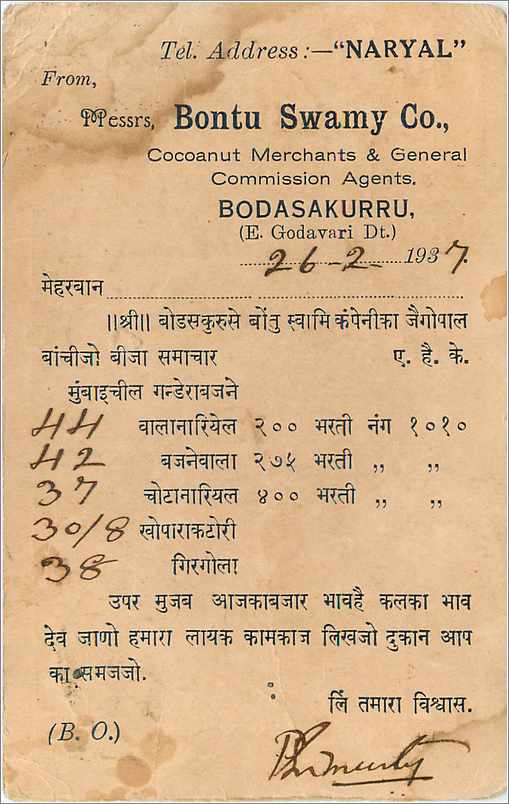 Tel. Address :—"NARYAL"
From,
Messrs, Bontu Swamy Co.,
Cocoanut Merchants & General
Commission Agents.
BODASAKURRU,
(E. Godavari Dt.)
26-2- 1937.
मेहरबान
||श्री|| बोडसकुरुसे बोंतु स्वामि कंपेनीका जैगोपाल
बांचीजो बीजा समाचार ए. है. के.
मुंबाइचील गन्डेराबजने
44 वालानारियेल २०० भरती नंग १०१०
42 बजनेवाला २७५ भरती ,, ,,
37 चोटानारियल ४०० भरती ,, ,,
30/8 खोपाराकटोरी
38 गिरगोला
उपर मुजब आजकाबजार भावहै कलका भाव
देव जाणो हमारा लायक कामकाज लिखजो दुकान आप
का समजजो.
लिं तमारा विश्वास.
(B. O.)